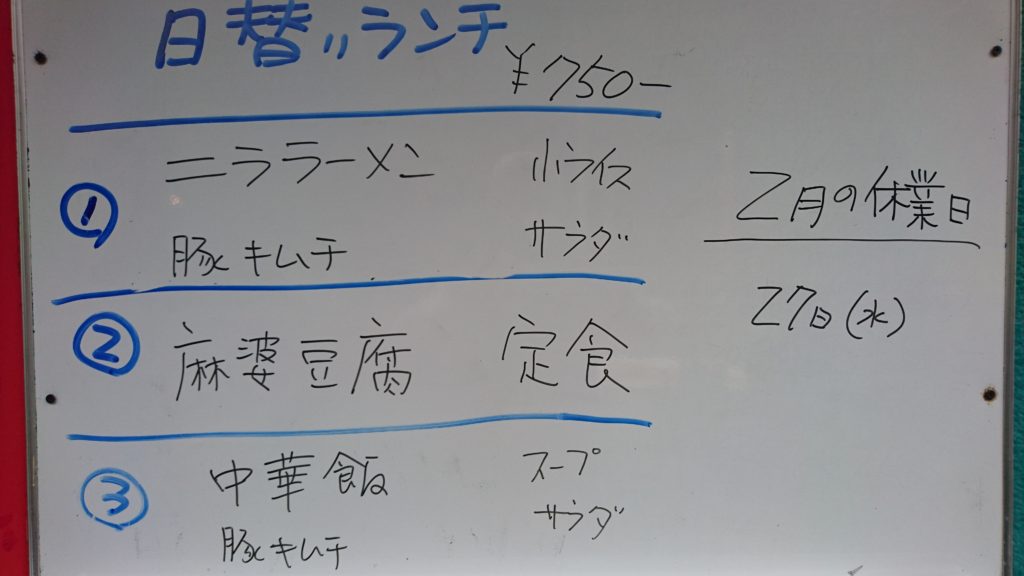 日替リランチ
¥750ー
① ニララーメン 小ライス
豚キムチ サラダ
② 麻婆豆腐 定食
③ 中華飯 スープ
豚キムチ サラダ
2月の休業日
27日(水)